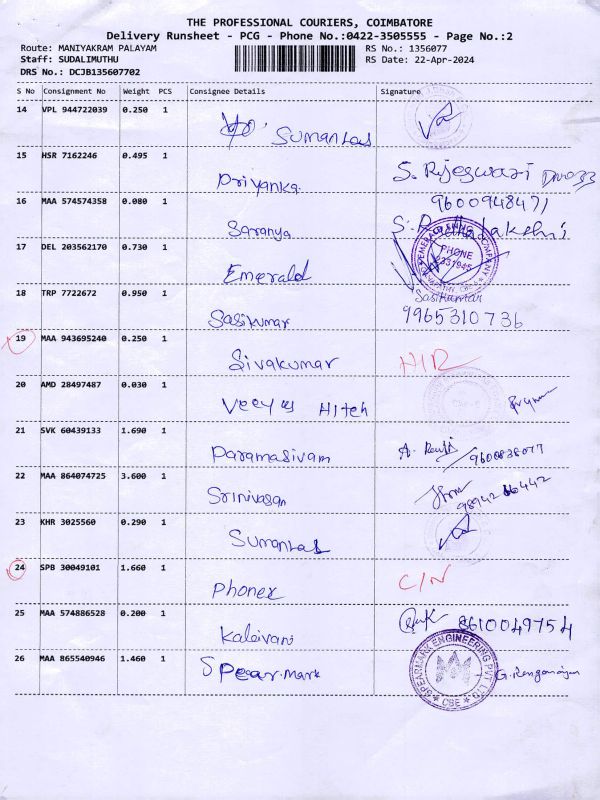 THE PROFESSIONAL COURIERS, COIMBATORE
Delivery Runsheet - PCG - Phone No.:0422-3505555 - Page No.:2
Route: MANIYAKRAM PALAYAM RS No.: 1356077
Staff: SUDALIMUTHU RS Date: 22-Apr-2024
DRS No.: DCJB135607702
S No Consignment No Weight PCS Consignee Details Signature
14 VPL 944722039 0.250 1
Sumanlal
15 HSR 7162246 0.495 1
Priyanka S. Rajeswari
16 MAA 574574358 0.080 1 9600948471
Saranya
17 DEL 203562170 0.730 1 PHONE
Emerald
18 TRP 7722672 0.950 1 Sasikumar
Sasikumar 9965310736
19 MAA 943695240 0.250 1
Sivakumar
20 AMD 28497487 0.030 1
Hitech
21 SVK 60439133 1.690 1
Paramasivam
22 MAA 864074725 3.600 1
Srinivasan
23 KHR 3025560 0.290 1
Sumanlal
24 SPB 30049101 1.660 1
Phonex C/N
25 MAA 574886528 0.200 1
Kalaivani 8610049754
26 MAA 865540946 1.460 1 SPEARMARK ENGINEERING PVT LTD
Spear.mark CBE